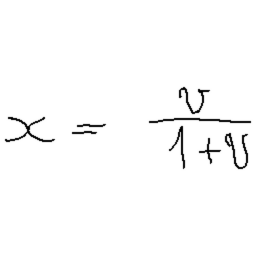 x = \frac{v}{1+v}